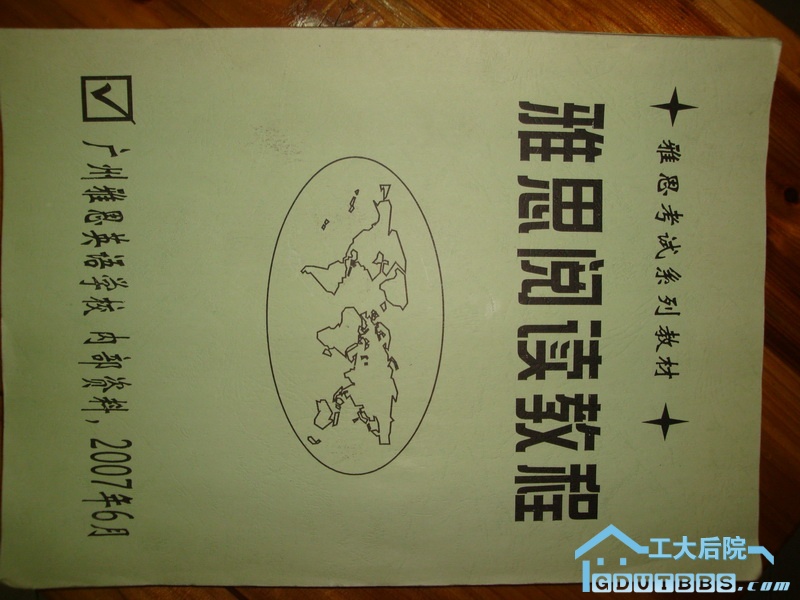 雅思考试系列教材
雅思阅读教程
广州雅思英语学校 内部资料，2007年6月
工大后院
GDUTBBS.com